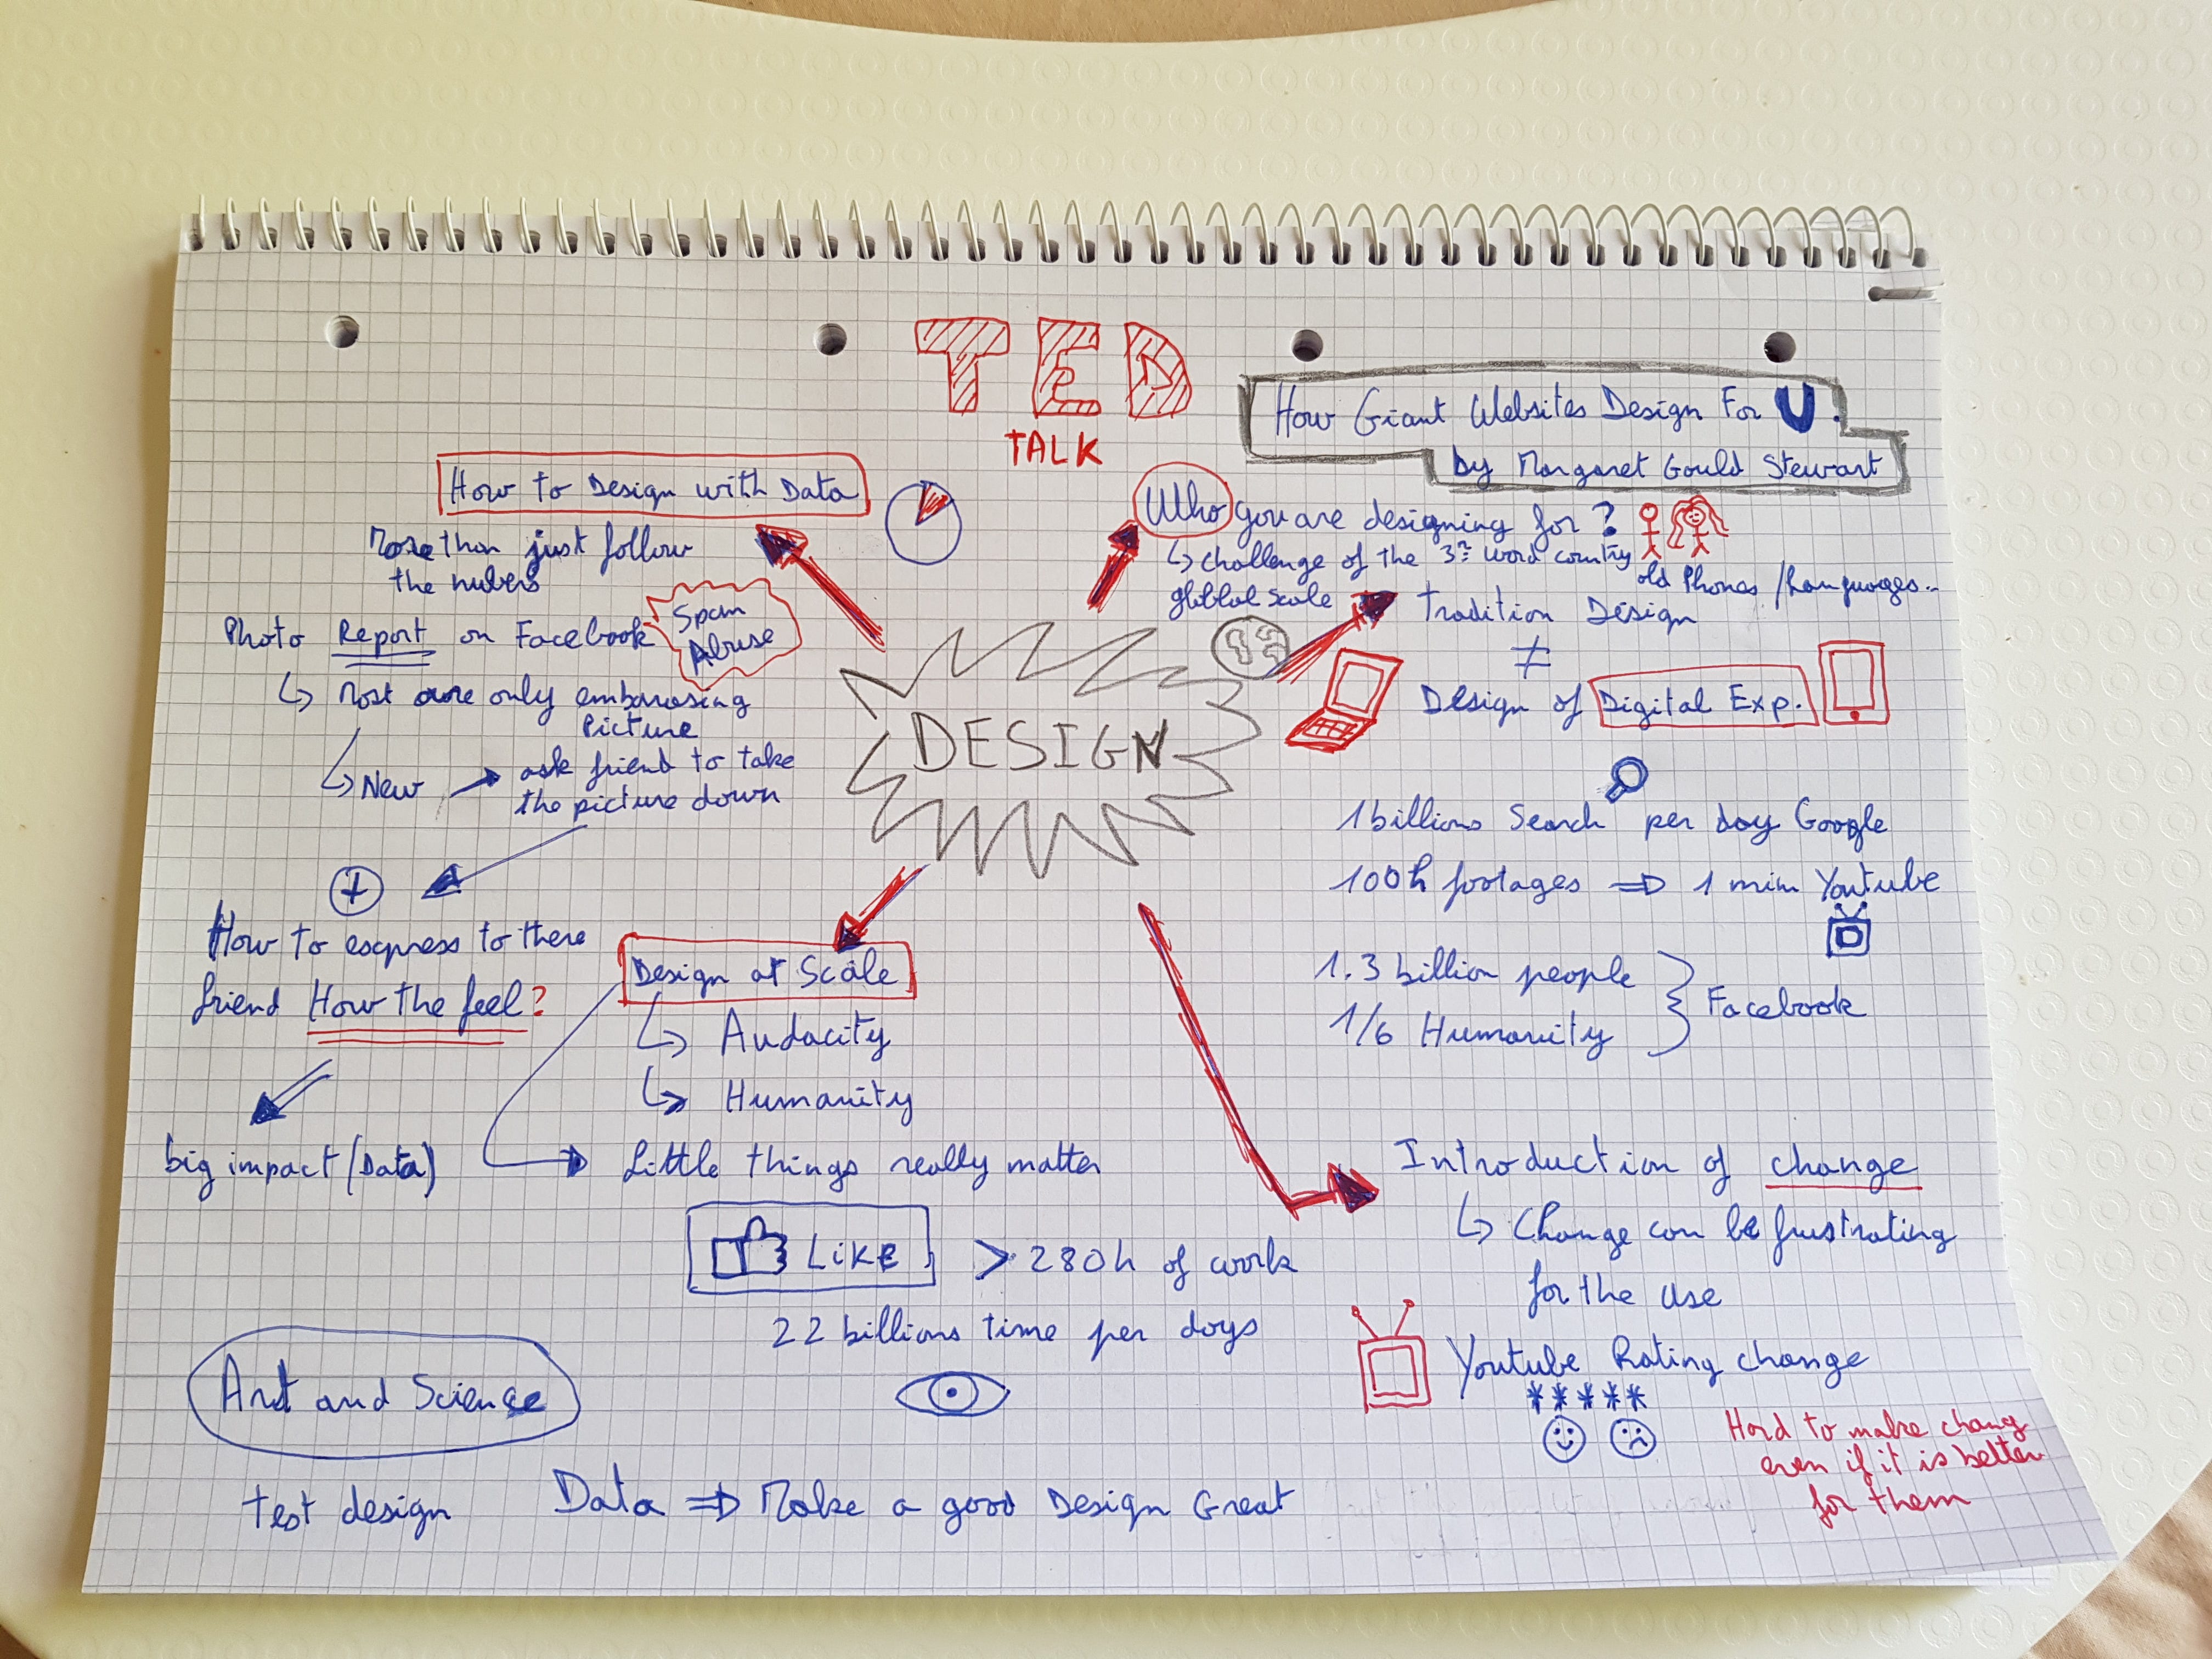 TED
TALK
How Giant Websites Design For U.
by Margaret Gould Stewart
How to Design with Data
More than just follow
the nubers
Photo Report on Facebook
Spam
Abuse
↳ Most are only embarasing
Picture
↳ New → ask friend to take
the picture down
+
How to express to there
friend How the feel?
big impact (Data)
Who you are designing for?
↳ challenge of the 3rd word country
old Phones / Languages..
globlal scale
Tradition Design
≠
Design of Digital Exp.
DESIGN
1 billions Search per day Google
100h footages ⇒ 1 min Youtube
1.3 billion people
1/6 Humanity
} Facebook
Design at Scale
↳ Audacity
↳ Humanity
Little things really matter
LIKE > 280h of work
22 billions time per days
Introduction of change
↳ Change can be frustrating
for the use
Youtube Rating change
*****
Hard to make chang
even if it is better
for them
Art and Science
test design
Data ⇒ Make a good Design Great